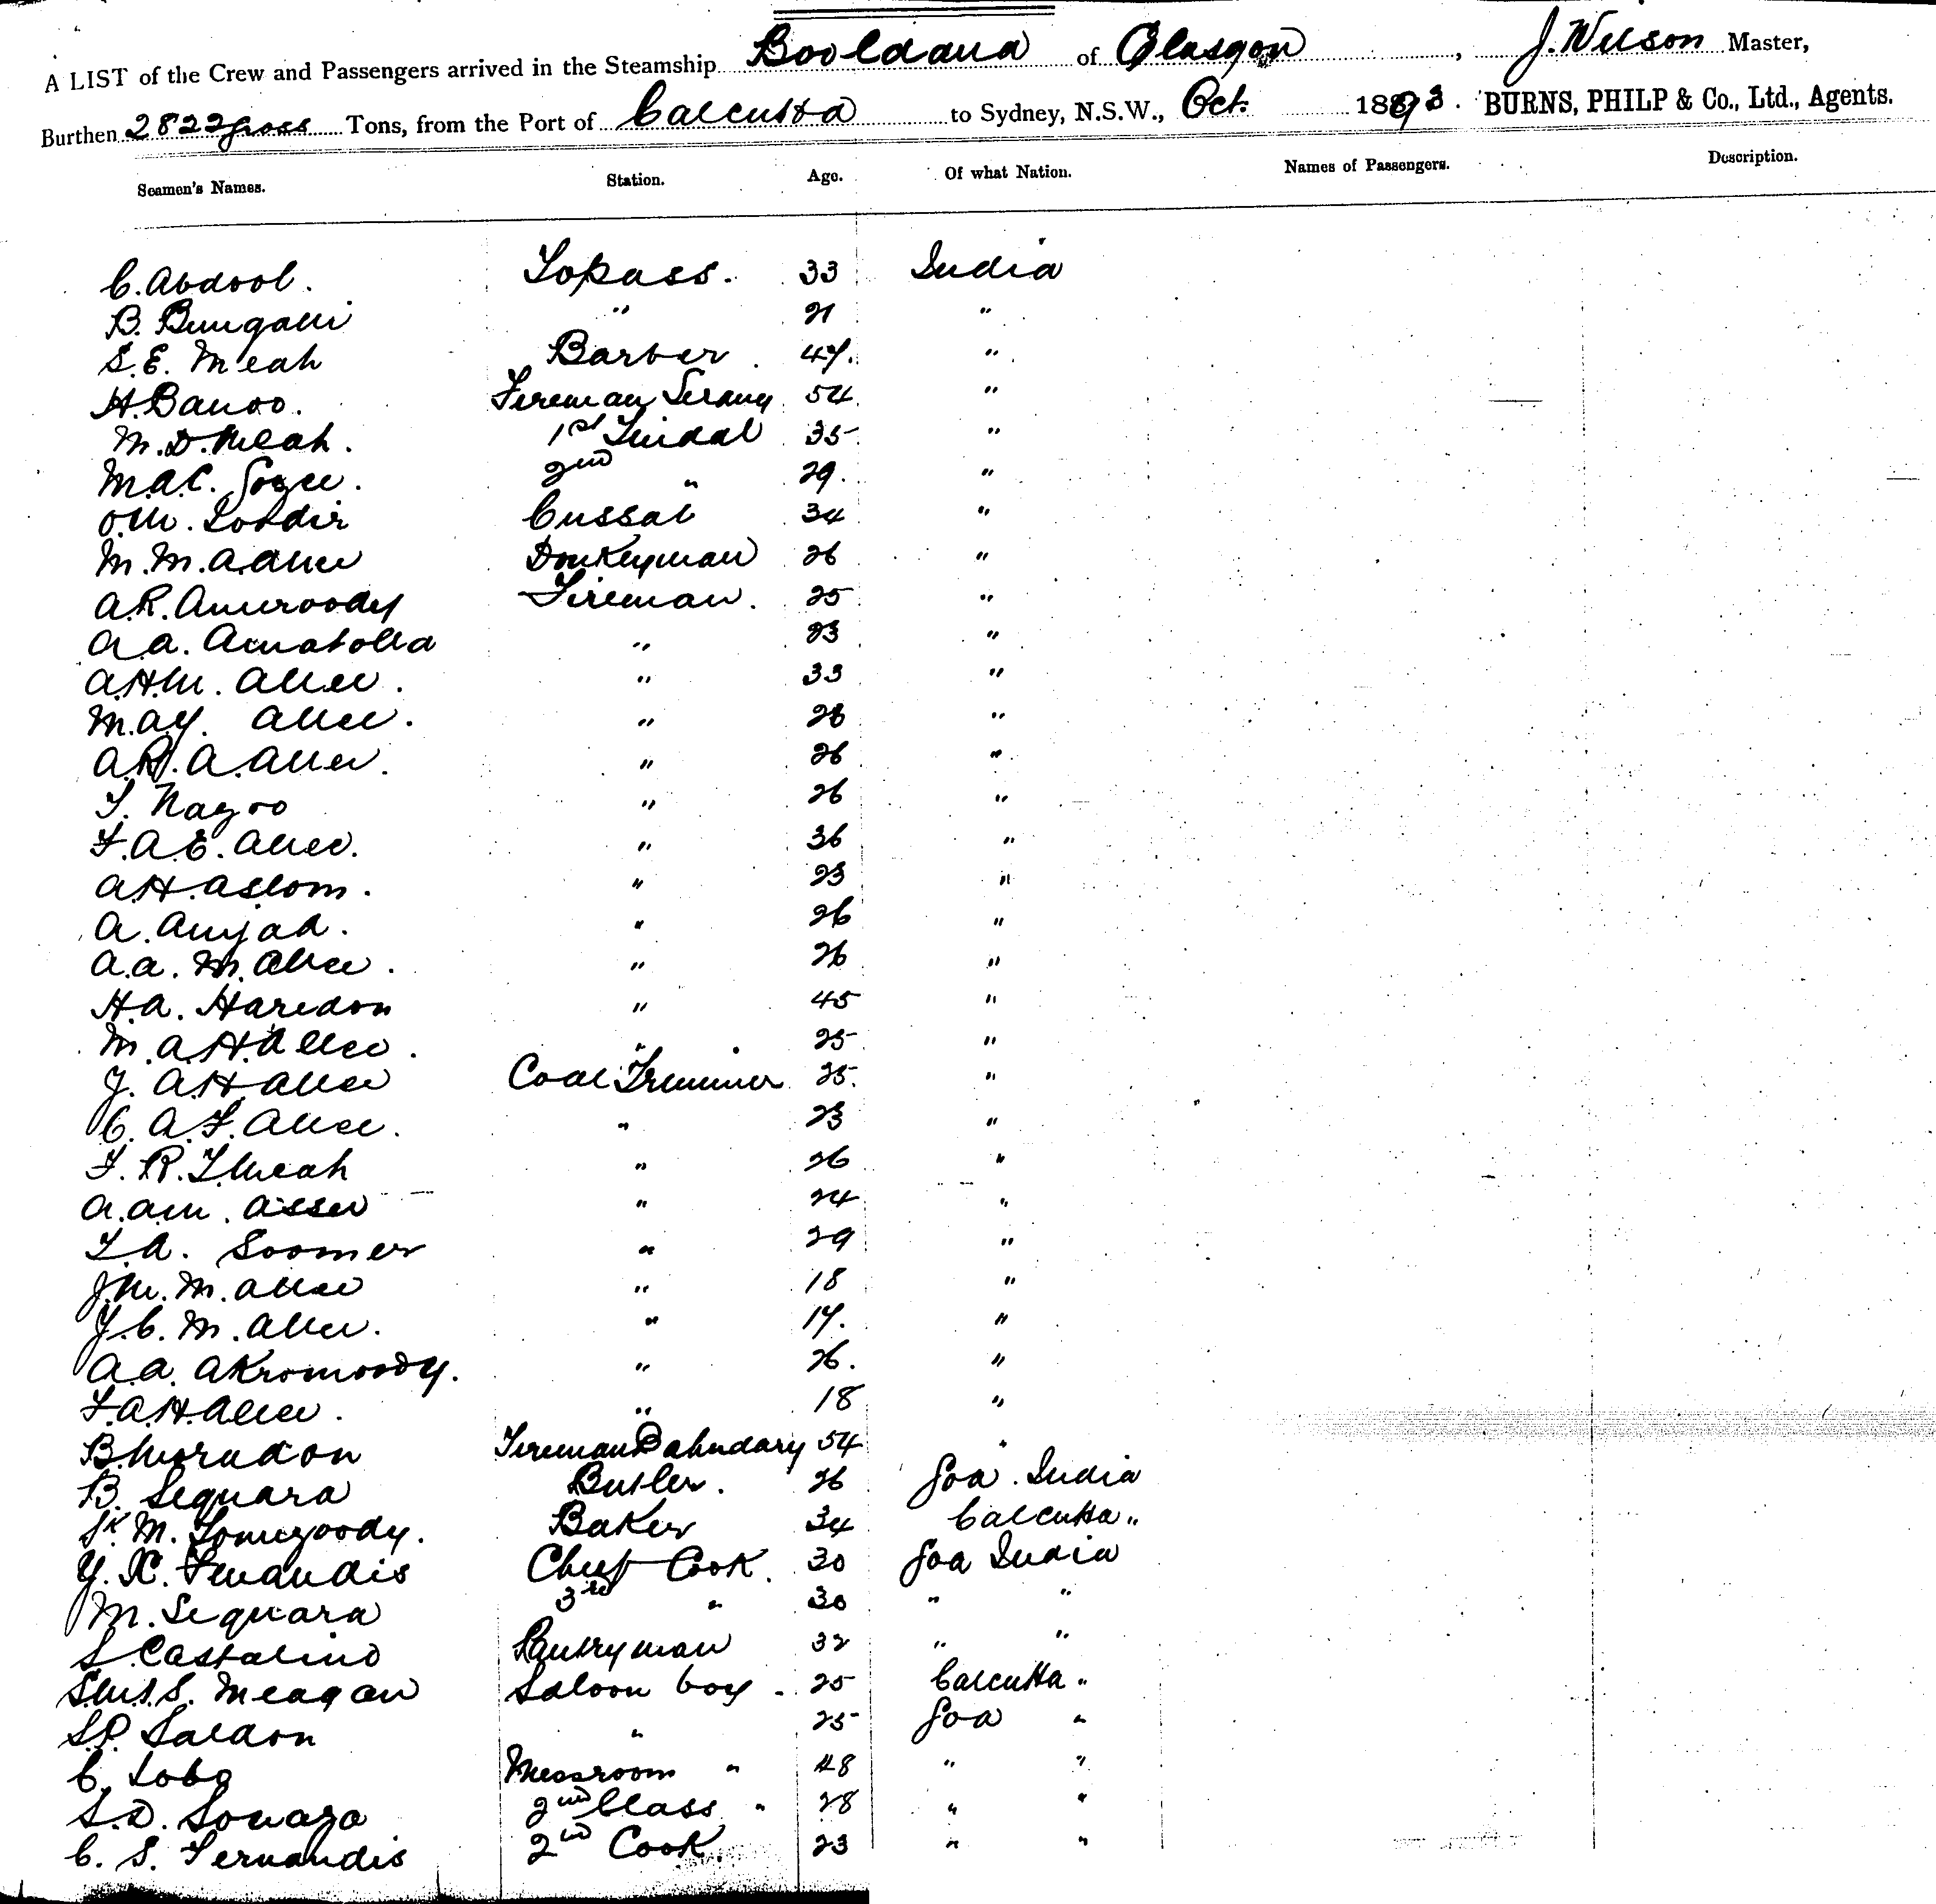 A LIST of the Crew and Passengers arrived in the Steamship Booldana of Glasgow, J. Wilson Master,
Burthen 2822 gross Tons, from the Port of Calcutta to Sydney, N.S.W., Oct. 1893. BURNS, PHILP & Co., Ltd., Agents.
Seamen's Names. Station. Age. Of what Nation. Names of Passengers. Description.
C. Abdool. Topass. 33 India
B. Bungalli " 21 "
S. E. Meah Barber. 47. "
H. Banoo. Fireman Serang 54. "
M. D. Meah. 1st Tindal 35 "
M.A.C. 2nd " 29. "
O.M. Cussab 34 "
M. M. A. Allee Donkeyman 26 "
A.R. Ameroody Fireman. 25 "
A A. Amatolla " 23 "
A.H.M. Allee. " 33 "
M.A.Y. Allee. " 28 "
A.R. A. Allee. " 26 "
T. Nagoo " 26 "
F. A. E. Allee. " 36 "
A.H. Aslom. " 23 "
A. Amjad. " 26 "
A.A. M. Allee. " 26 "
H.A. Haredon " 45 "
M. A.H. Allee. " 25 "
J. A.H. Allee Coal Trimmer 25. "
C. A. F. Allee. " 23 "
F. R. T. Meah " 26 "
A. A.M. Assee " 24 "
T.A. Soomer " 29 "
J.M. M. Allee " 18 "
Y. C. M. Allee. " 17. "
A.A. Akromoody. " 26. "
F. A.H. Allee. " 18 "
B. Moradon Fireman Bahndary 54 "
B. Sequara Butler. 26 Goa. India
Sk. M. Baker 34 Calcutta "
Y. X. Fenandis Chief Cook. 30 Goa India
M. Sequara 3rd " 30 " "
S. Castalino Pantryman 32 " "
S. Meagan Saloon boy. 25 Calcutta "
S.P. Saldon " 25 Goa "
C. Lobo Messroom " 48 " "
S.D. Souaza 2nd Class " 28 " "
C. S. Fernandis 2nd Cook. 23 " "